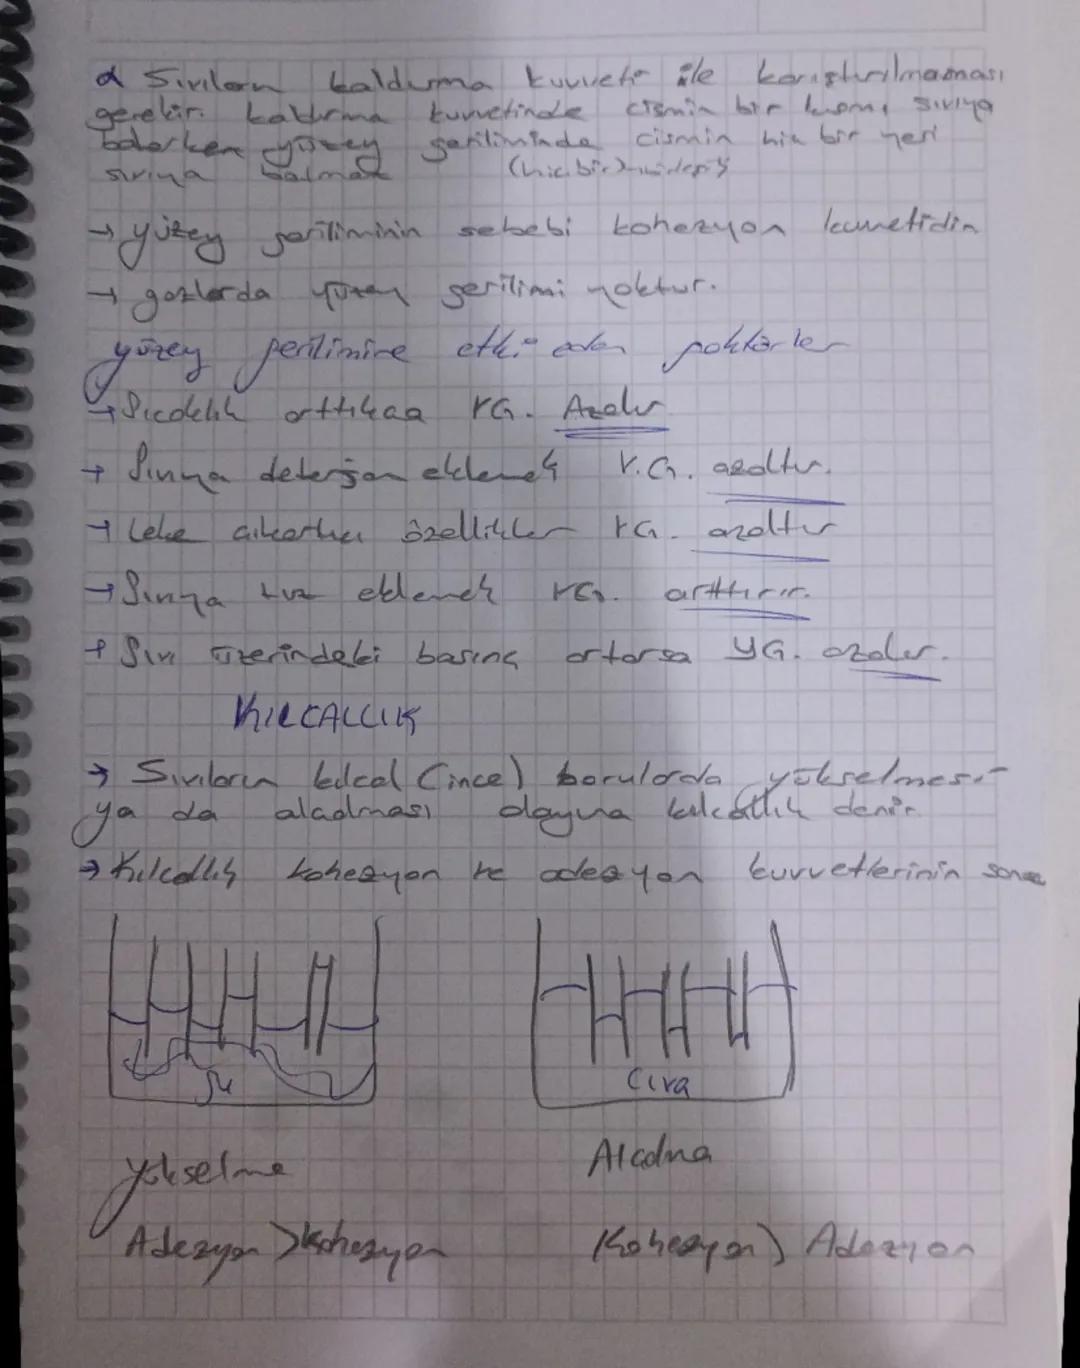 Sıvıların kaldırma kuvveti ile karıştırılmaması
gerekir. kaldırma kuvvetinde cismin bir kısmı sıvıya
batarken yüzey geriliminde cismin hiç bir yeri
sıvıya batmaz (hiçbir)
→ yüzey geriliminin sebebi kohezyon kuvvetidir
→ gazlarda yüzey gerilimi yoktur.
yüzey gerilimine etki eden faktörler
→ Sıcaklık arttıkça Y.G. Azalır
→ Sıvıya deterjan eklemek Y.G. azaltır.
→ Leke çıkartıcı özellikler Y.G. azaltır
→ Sıvıya tuz eklemek Y.G. arttırır.
→ Sıvı üzerindeki basınç artarsa YG. azalır.
KILCALLIK
→ Sıvıların kılcal (ince) borularda yükselmesi
ya da alçalması olayına kılcallık denir.
→ Kılcallık kohezyon ve adezyon kuvvetlerinin
Su
Cıva
yükselme
Alçalma
Adezyon > kohezyon
Kohezyon > Adezyon